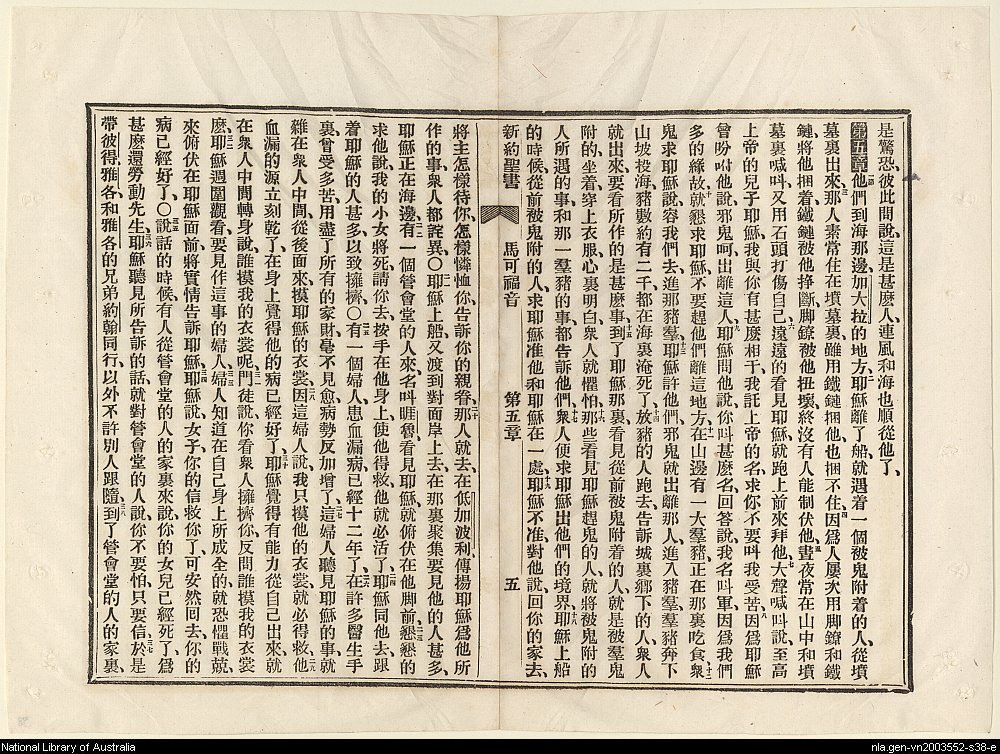 是驚恐、彼此間說、這是甚麼人、連風和海也順從他了、
第五章 他們到海那邊加大拉的地方、耶穌離了船、就遇着一個被鬼附着的人、從墳
墓裏出來、那人素常住在墳墓裏、雖用鐵鏈捆他、也捆不住、因爲人屢次用脚鐐和鐵
鏈、將他捆着、鐵鏈被他掙斷、脚鐐被他扭壞、終沒有人能制伏他、晝夜常在山中和墳
墓裏喊呌、又用石頭打傷自己、遠遠的看見耶穌、就跑上前來拜他、大聲喊呌說、至高
上帝的兒子耶穌、我與你有甚麼相干、我託上帝的名求你、不要呌我受苦、因爲耶穌
曾吩咐他說、邪鬼呵、出離這人、耶穌問他說、你呌甚麼名、回答說、我名呌軍、因爲我們
多的緣故、就懇求耶穌、不要趕他們離這地方、在山邊有一大羣豬、正在那裏吃食、衆
鬼求耶穌說、容我們去進那豬羣、耶穌許他們、邪鬼就出離那人、進入豬羣、羣豬奔下
山坡、投海、豬數約有二千、都在海裏淹死了、放豬的人跑去、告訴城裏鄉下的人、衆人
就出來、要看所作的是甚麼事、到了耶穌那裏、看見從前被鬼附着的人、就是被羣鬼
附的、坐着、穿上衣服、心裏明白、衆人就懼怕、那些看見耶穌趕鬼的人、就將被鬼附的
人所遇的事、和那一羣豬的事、都告訴他們、衆人便求耶穌出他們的境界、耶穌上船
的時候、從前被鬼附的人、求耶穌准他和耶穌在一處、耶穌不准、對他說、回你的家去、
新約聖書 馬可福音 第五章 五
將主怎樣待你、怎樣憐恤你、告訴你的親眷、那人就去、在低加波利傳揚耶穌爲他所
作的事、衆人都詫異○耶穌上船、又渡到對面岸上去、在那裏聚集要見他的人甚多、
耶穌正在海邊、有一個管會堂的人來、名呌睚魯、看見耶穌、就俯伏在他脚前、懇懇的
求他說、我的小女將死、請你去按手在他身上、使他得救、他就必活了、耶穌同他去、跟
着耶穌的人甚多、以致擁擠○有一個婦人、患血漏病、已經十二年了、在許多醫生手
裏、曾受多苦、用盡了所有的家財、毫不見愈、病勢反加增了、這婦人聽見耶穌的事、就
雜在衆人中間、從後面來、摸耶穌的衣裳、因這婦人說、我只摸他的衣裳、就必得救、他
血漏的源立刻乾了、在身上覺得他的病已經好了、耶穌覺得有能力從自己出來、就
在衆人中間轉身說、誰摸我的衣裳呢、門徒說、你看衆人擁擠你、反問誰摸我的衣裳
麽、耶穌週圍觀看、要見作這事的婦人、婦人知道在自己身上所成全的、就恐懼戰兢、
來俯伏在耶穌面前、將實情告訴耶穌、耶穌說、女子、你的信救你了、可安然回去、你的
病已經好了、○說話的時候、有人從管會堂的人的家裏來、說、你的女兒已經死了、爲
甚麽還勞動先生、耶穌聽見所告訴的話、就對管會堂的人說、你不要怕、只要信、於是
帶彼得雅各、和雅各的兄弟約翰同行、以外不許別人跟隨、到了管會堂的人的家裏、
National Library of Australia
nla.gen-vn2003552-s38-e